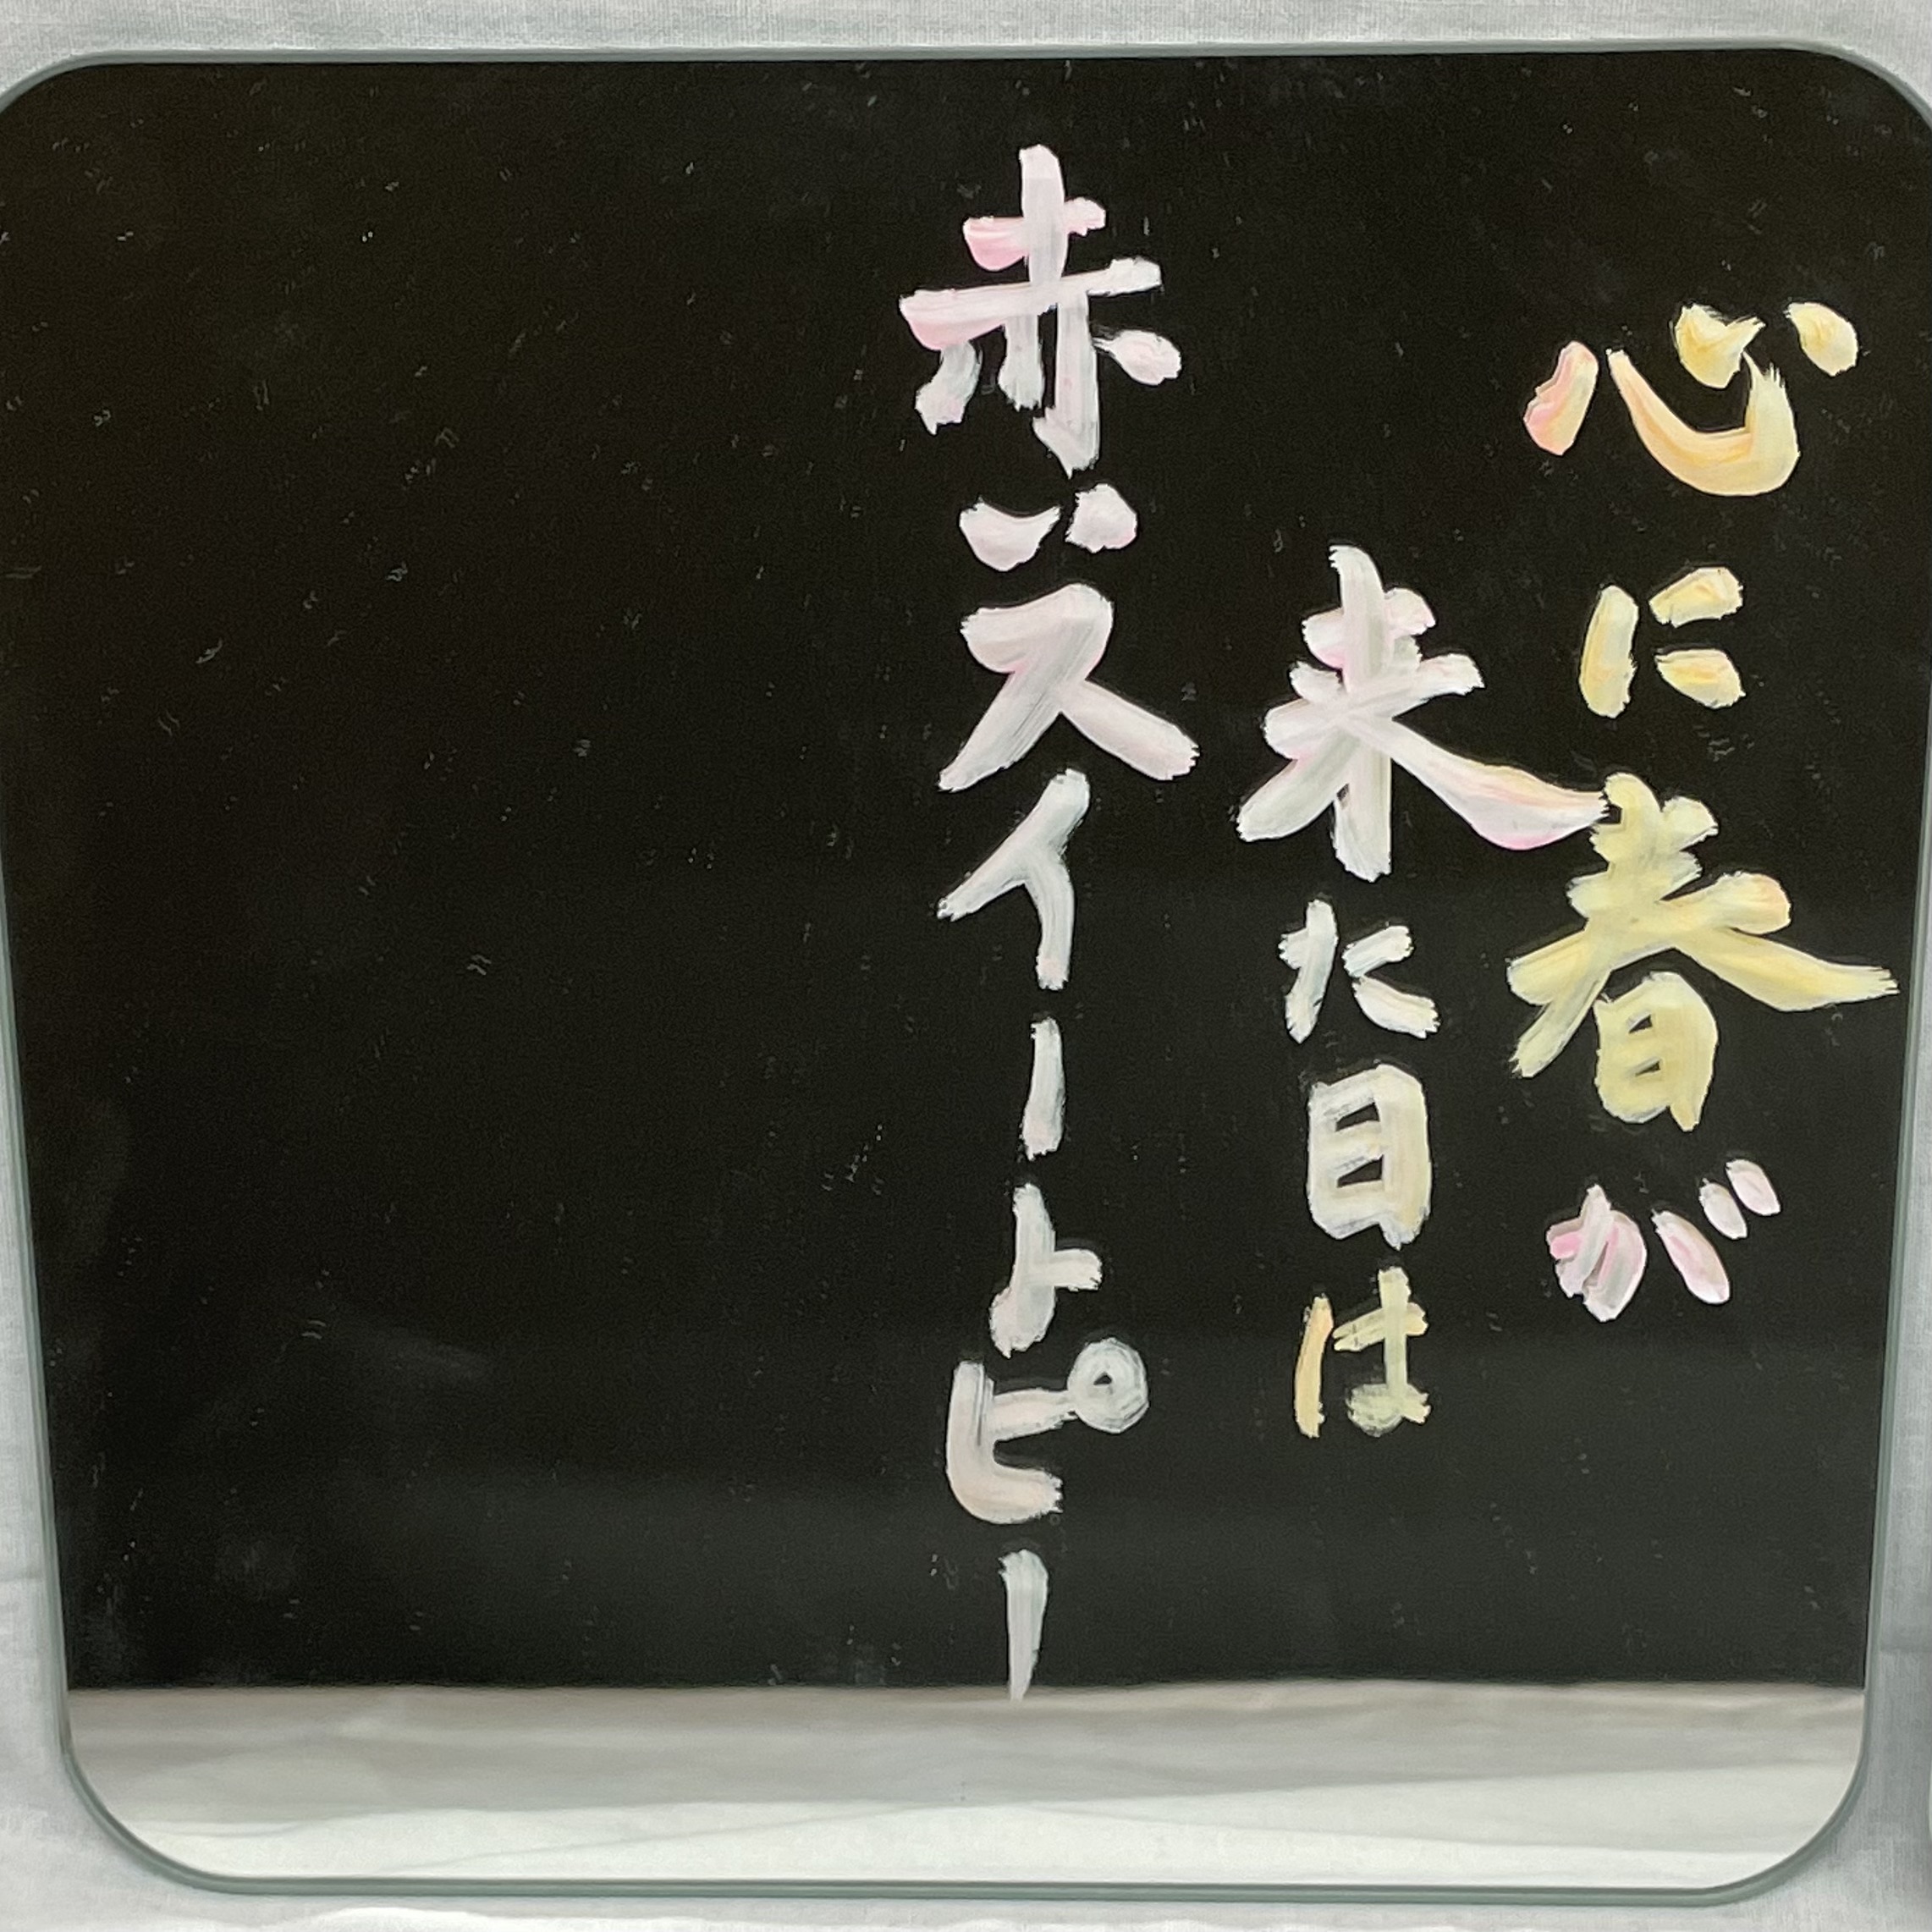 心に春が
来た日は
赤いスイートピー